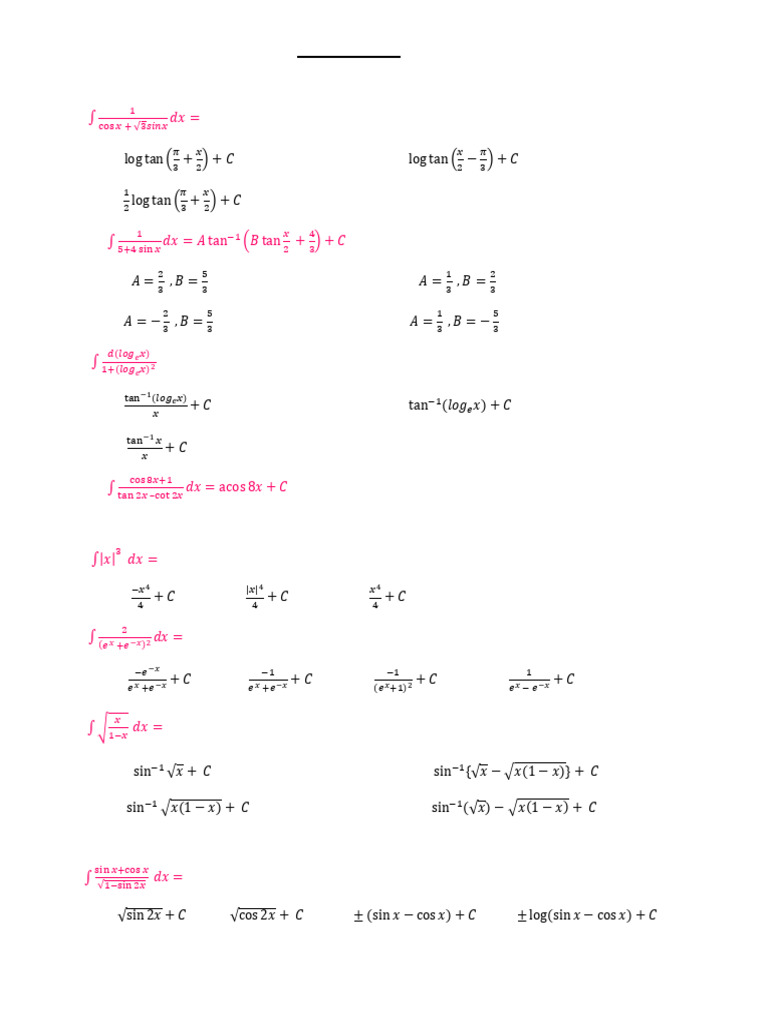 ∫ 1/(cos x + √3 sinx) dx =
log tan (π/3 + x/2) + C    log tan (x/2 − π/3) + C
1/2 log tan (π/3 + x/2) + C
∫ 1/(5+4 sin x) dx = A tan⁻¹ (B tan x/2 + 4/3) + C
A = 2/3 , B = 5/3    A = 1/3 , B = 2/3
A = − 2/3 , B = 5/3    A = 1/3 , B = − 5/3
∫ d(logₑx)/(1+(logₑx)²)
tan⁻¹(logₑx)/x + C    tan⁻¹(logₑx) + C
tan⁻¹x/x + C
∫ (cos 8x+1)/(tan 2x−cot 2x) dx = acos 8x + C
∫|x|³ dx =
−x⁴/4 + C    |x|⁴/4 + C    x⁴/4 + C
∫ 2/(eˣ+e⁻ˣ)² dx =
−e⁻ˣ/(eˣ+e⁻ˣ) + C    −1/(eˣ+e⁻ˣ) + C    −1/(eˣ+1)² + C    1/(eˣ − e⁻ˣ) + C
∫ √(x/(1−x)) dx =
sin⁻¹ √x + C    sin⁻¹{√x − √(x(1 − x))} + C
sin⁻¹ √(x(1 − x)) + C    sin⁻¹(√x) − √(x(1 − x)) + C
∫ (sin x+cos x)/√(1−sin 2x) dx =
√(sin 2x) + C    √(cos 2x) + C    ± (sin x − cos x) + C    ± log(sin x − cos x) + C